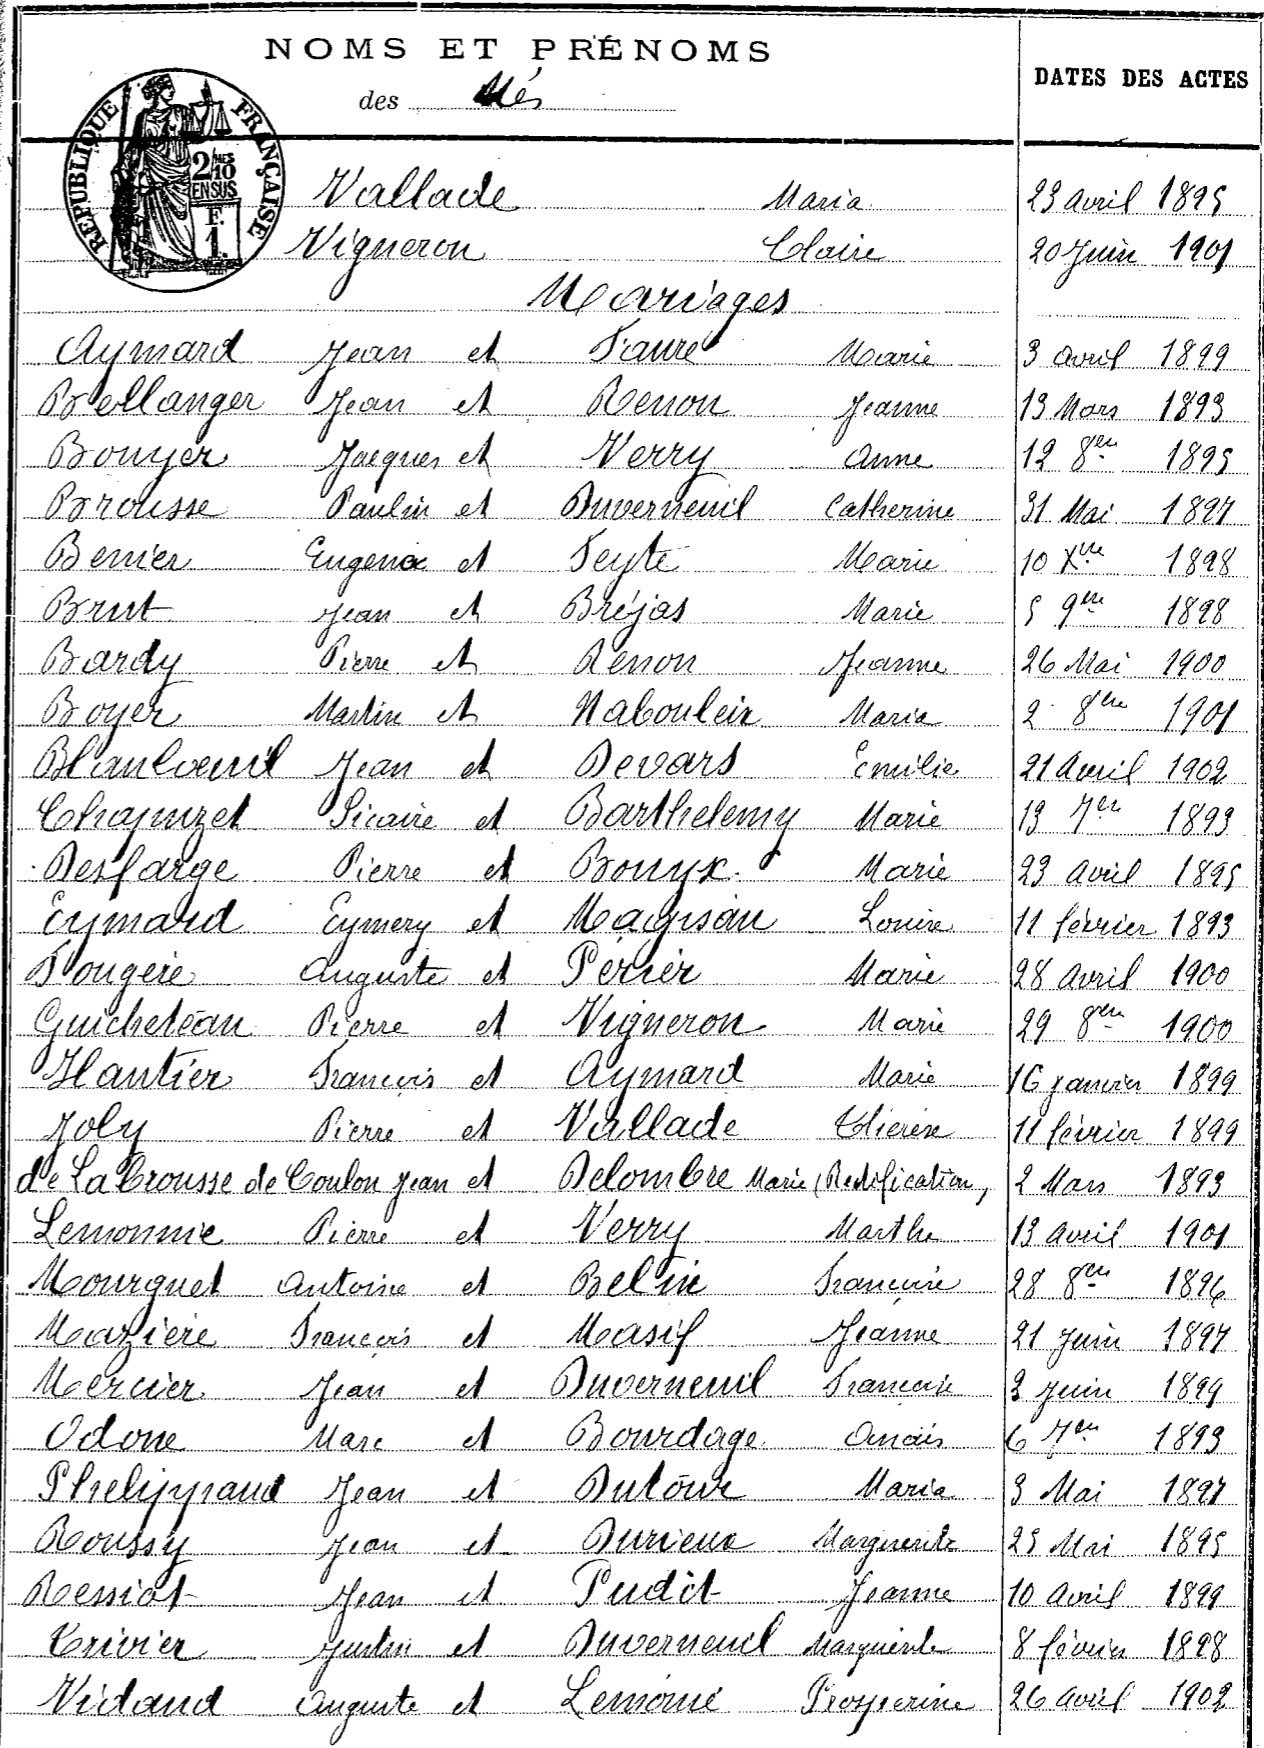 NOMS ET PRÉNOMS
des Nés
DATES DES ACTES
RÉPUBLIQUE FRANÇAISE
2/10
EN SUS
F.
1.
Vallade Maria 23 avril 1895
Vigneron Claire 20 Juin 1901
Mariages
Aymard Jean et Faure Marie 3 avril 1899
Bellanger Jean et Renon Jeanne 13 Mars 1893
Bouyer Jacques et Verry Anne 12 8bre 1895
Brousse Paulin et Duverneuil Catherine 31 Mai 1897
Benier Eugene et Feyte Marie 10 Xbre 1898
Brut Jean et Bréjas Marie 5 9bre 1898
Bardy Pierre et Renon Jeanne 26 Mai 1900
Boyer Martin et Nabouleix Maria 2 8bre 1901
Blanloeuil Jean et Devars Emilie 21 Avril 1902
Chapuzet Sicaire et Barthelemy Marie 13 7bre 1893
Desfarge Pierre et Bouyx Marie 23 avril 1895
Eymard Eymery et Magisan Louise 11 février 1893
Fougère Auguste et Périer Marie 28 avril 1900
Guicheteau Pierre et Vigneron Marie 29 8bre 1900
Hantier François et Aymard Marie 16 janvier 1899
Joly Pierre et Vallade Thérèse 11 février 1899
de La Crousse de Coulon Jean et Delombre Marie (Rectification) 2 Mars 1893
Lemonnie Pierre et Verry Marthe 13 avril 1901
Mourguet Antoine et Belin Françoise 28 8bre 1896
Mazière François et Masif Jeanne 21 Juin 1897
Mercier Jean et Duverneuil Françoise 3 Juin 1899
Odone Marc et Bourdage Anaïs 6 7bre 1893
Phelippaud Jean et Dutour Maria 3 Mai 1897
Roussy Jean et Durieux Marguerite 25 Mai 1895
Ressiot Jean et Pudit Jeanne 10 avril 1899
Trivier Justin et Duverneuil Marguerite 8 février 1898
Vidaud Auguste et Lemoine Prosperine 26 avril 1902